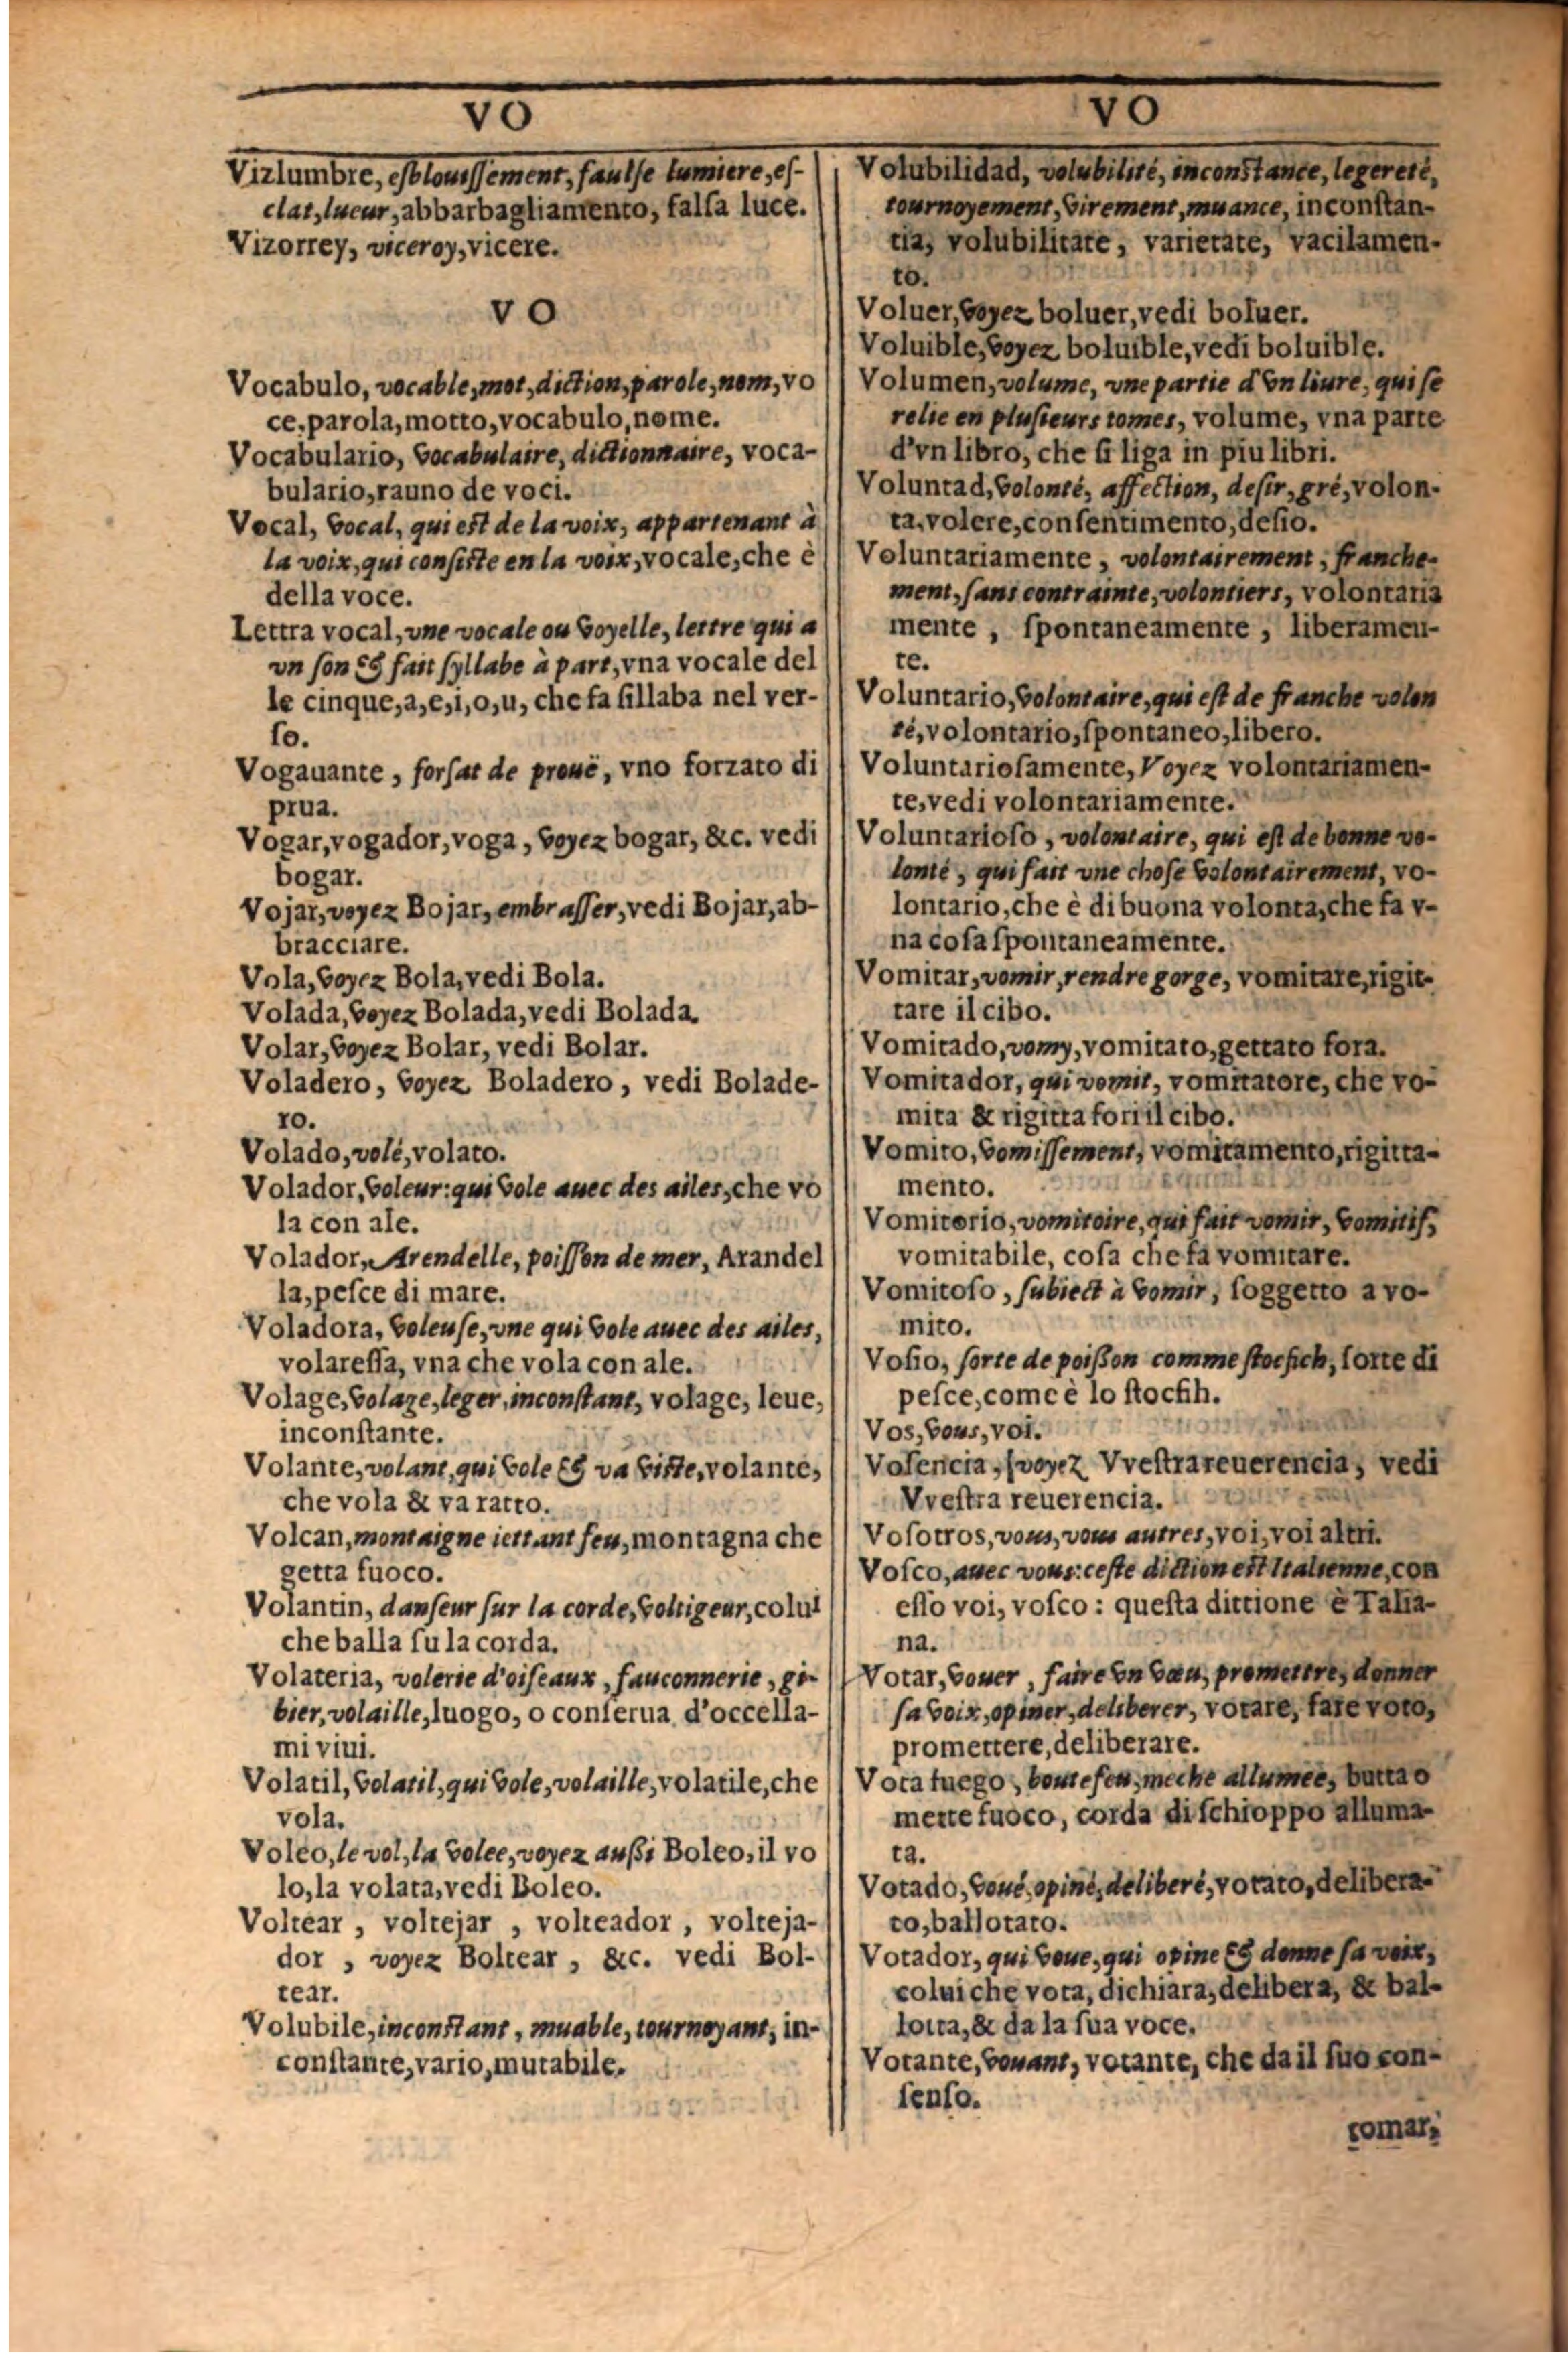 VO
Vizlumbre, esblouissement, faulse lumiere, es-
clat, lueur, abbarbagliamento, falsa luce.
Vizorrey, viceroy, vicere.
VO
Vocabulo, vocable, mot, diction, parole, nom, vo
ce, parola, motto, vocabulo, nome.
Vocabulario, vocabulaire, dictionnaire, voca-
bulario, rauno de voci.
Vocal, vocal, qui est de la voix, appartenant à
la voix, qui consiste en la voix, vocale, che è
della voce.
Lettra vocal, vne vocale ou voyelle, lettre qui a
vn son & fait syllabe à part, vna vocale del
le cinque, a, e, i, o, u, che fa sillaba nel ver-
so.
Vogauante, forsat de prouë, vno forzato di
prua.
Vogar, vogador, voga, voyez bogar, &c. vedi
bogar.
Vojar, voyez Bojar, embrasser, vedi Bojar, ab-
bracciare.
Vola, voyez Bola, vedi Bola.
Volada, voyez Bolada, vedi Bolada.
Volar, voyez Bolar, vedi Bolar.
Voladero, voyez Boladero, vedi Bolade-
ro.
Volado, volé, volato.
Volador, voleur: qui vole auec des ailes, che vo
la con ale.
Volador, Arendelle, poisson de mer, Arandel
la, pesce di mare.
Voladora, voleuse, vne qui vole auec des ailes,
volaressa, vna che vola con ale.
Volage, volage, leger, inconstant, volage, leue,
inconstante.
Volante, volant, qui vole & va viste, volante,
che vola & va ratto.
Volcan, montaigne iettant feu, montagna che
getta fuoco.
Volantin, danseur sur la corde, voltigeur, colui
che balla su la corda.
Volateria, volerie d'oiseaux, fauconnerie, gi-
bier, volaille, luogo, o conserua d'occella-
mi viui.
Volatil, volatil, qui vole, volaille, volatile, che
vola.
Voleo, le vol, la volee, voyez aussi Boleo, il vo
lo, la volata, vedi Boleo.
Voltear, voltejar, volteador, volteja-
dor, voyez Boltear, &c. vedi Bol-
tear.
Volubile, inconstant, muable, tournoyant, in-
constante, vario, mutabile.
VO
Volubilidad, volubilité, inconstance, legereté,
tournoyement, virement, muance, inconstan-
tia, volubilitate, varietate, vacilamen-
to.
Voluer, voyez boluer, vedi boluer.
Voluible, voyez boluible, vedi boluible.
Volumen, volume, vne partie d'vn liure, qui se
relie en plusieurs tomes, volume, vna parte
d'vn libro, che si liga in piu libri.
Voluntad, volonté, affection, desir, gré, volon-
ta, volere, consentimento, desio.
Voluntariamente, volontairement, franche-
ment, sans contrainte, volontiers, volontaria
mente, spontaneamente, liberamen-
te.
Voluntario, volontaire, qui est de franche volon
té, volontario, spontaneo, libero.
Voluntariosamente, Voyez volontariamen-
te, vedi volontariamente.
Voluntarioso, volontaire, qui est de bonne vo-
lonté, qui fait vne chose volontairement, vo-
lontario, che è di buona volonta, che fa v-
na cosa spontaneamente.
Vomitar, vomir, rendre gorge, vomitare, rigit-
tare il cibo.
Vomitado, vomy, vomitato, gettato fora.
Vomitador, qui vomit, vomitatore, che vo-
mita & rigitta fori il cibo.
Vomito, vomissement, vomitamento, rigitta-
mento.
Vomitorio, vomitoire, qui fait vomir, vomitif,
vomitabile, cosa che fa vomitare.
Vomitoso, subiect à vomir, soggetto a vo-
mito.
Vosio, sorte de poisson comme stocfich, sorte di
pesce, come è lo stocfih.
Vos, vous, voi.
Vosencia, (voyez Vvestra reuerencia, vedi
Vvestra reuerencia.
Vosotros, vous, vous autres, voi, voi altri.
Vosco, auec vous: ceste diction est Italienne, con
esso voi, vosco: questa dittione è Talia-
na.
Votar, vouer, faire vn vœu, promettre, donner
sa voix, opiner, deliberer, votare, fare voto,
promettere, deliberare.
Vota fuego, boutefeu, meche allumee, butta o
mette fuoco, corda di schioppo alluma-
ta.
Votado, voué, opiné, deliberé, votato, delibera-
to, ballotato.
Votador, qui voue, qui opine & donne sa voix,
colui che vota, dichiara, delibera, & bal-
lotta, & da la sua voce.
Votante, vouant, votante, che da il suo con-
senso.
tomar,